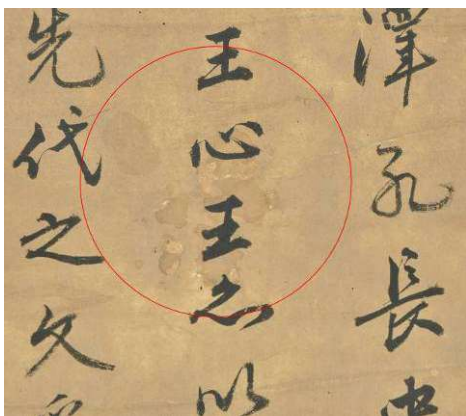 澤孔長
王心王以
先代之文